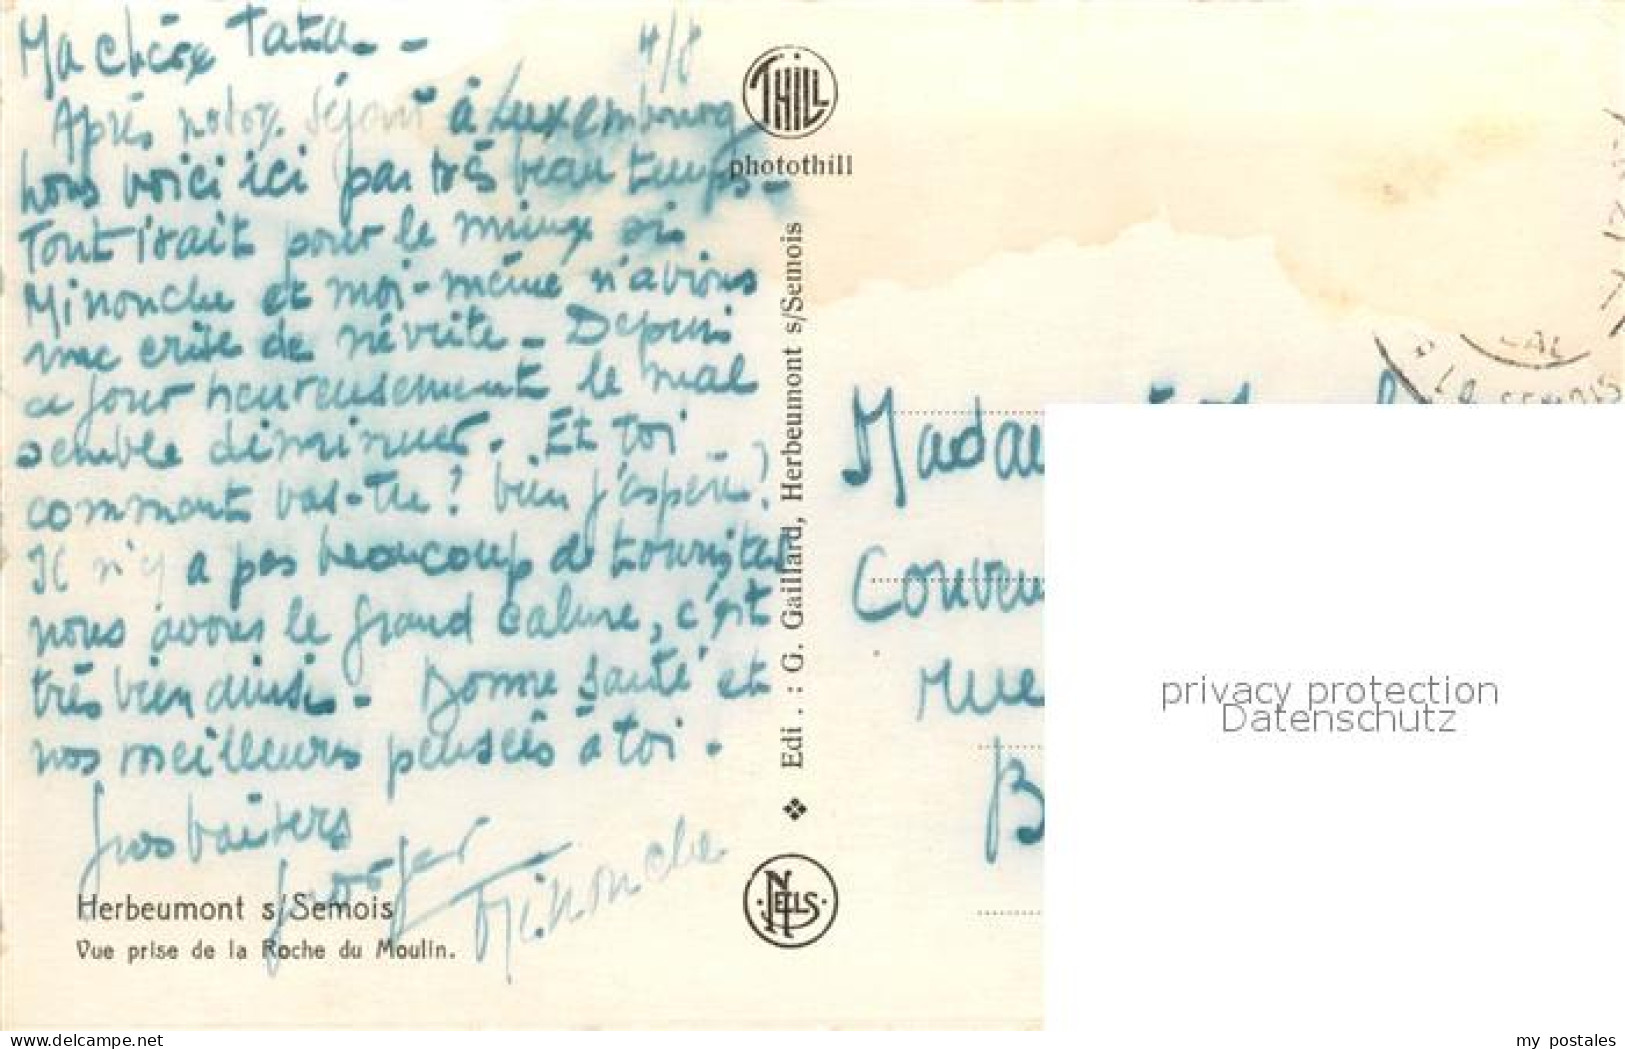 Ma chère Tata - -
4/8
Après notre séjour à Luxembourg
nous voici ici par très beau temps -
Tout irait pour le mieux si
Minonche et moi-même n'avions
une crise de névrite - Depuis
ce jour heureusement le mal
semble diminuer. Et toi
comment vas-tu ? bien j'espère ?
Il n'y a pas beaucoup de touristes
nous avons le grand calme, c'est
très bien ainsi - Bonne santé et
nos meilleures pensées à toi.
Gros baisers
Minonche
Herbeumont s/Semois
Vue prise de la Roche du Moulin.
THILL
photothill
Edi . : G. Gaillard, Herbeumont s/Semois
NELLS
Mada
Couve
rue
B
privacy protection
Datenschutz
delcampe.net
my postales